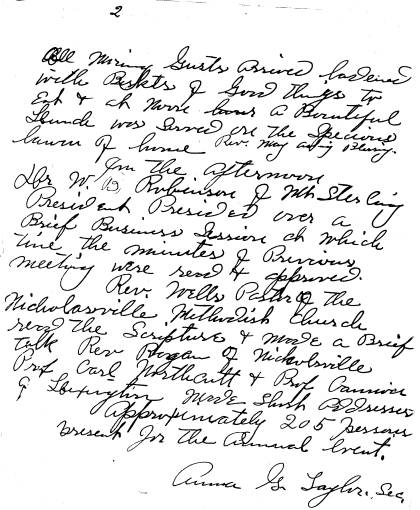 2
All morning Gusts Arived ladened
with Baskts of Good things to
Eat & at noon hour a Bountiful
Lunch was Served on the Specious
lawn of home Rev. May asking Blessing.
In the afternoon
W. Robinson of Mt Sterling
President Presided over a
Brief Business Session at which
time the minutes of Previous
meeting were read & approved.
Rev. Wells Pastor of the
Nicholasville Methodish Church
read the Scripture & made a Brief
talk Rev Hogan of Nicholsville
Prof Carl Northcutt & Prof
of Lexington made Short Addresses
Approximately 205 persons
present for the Annual Event.
Anna G. Taylor. Sec.